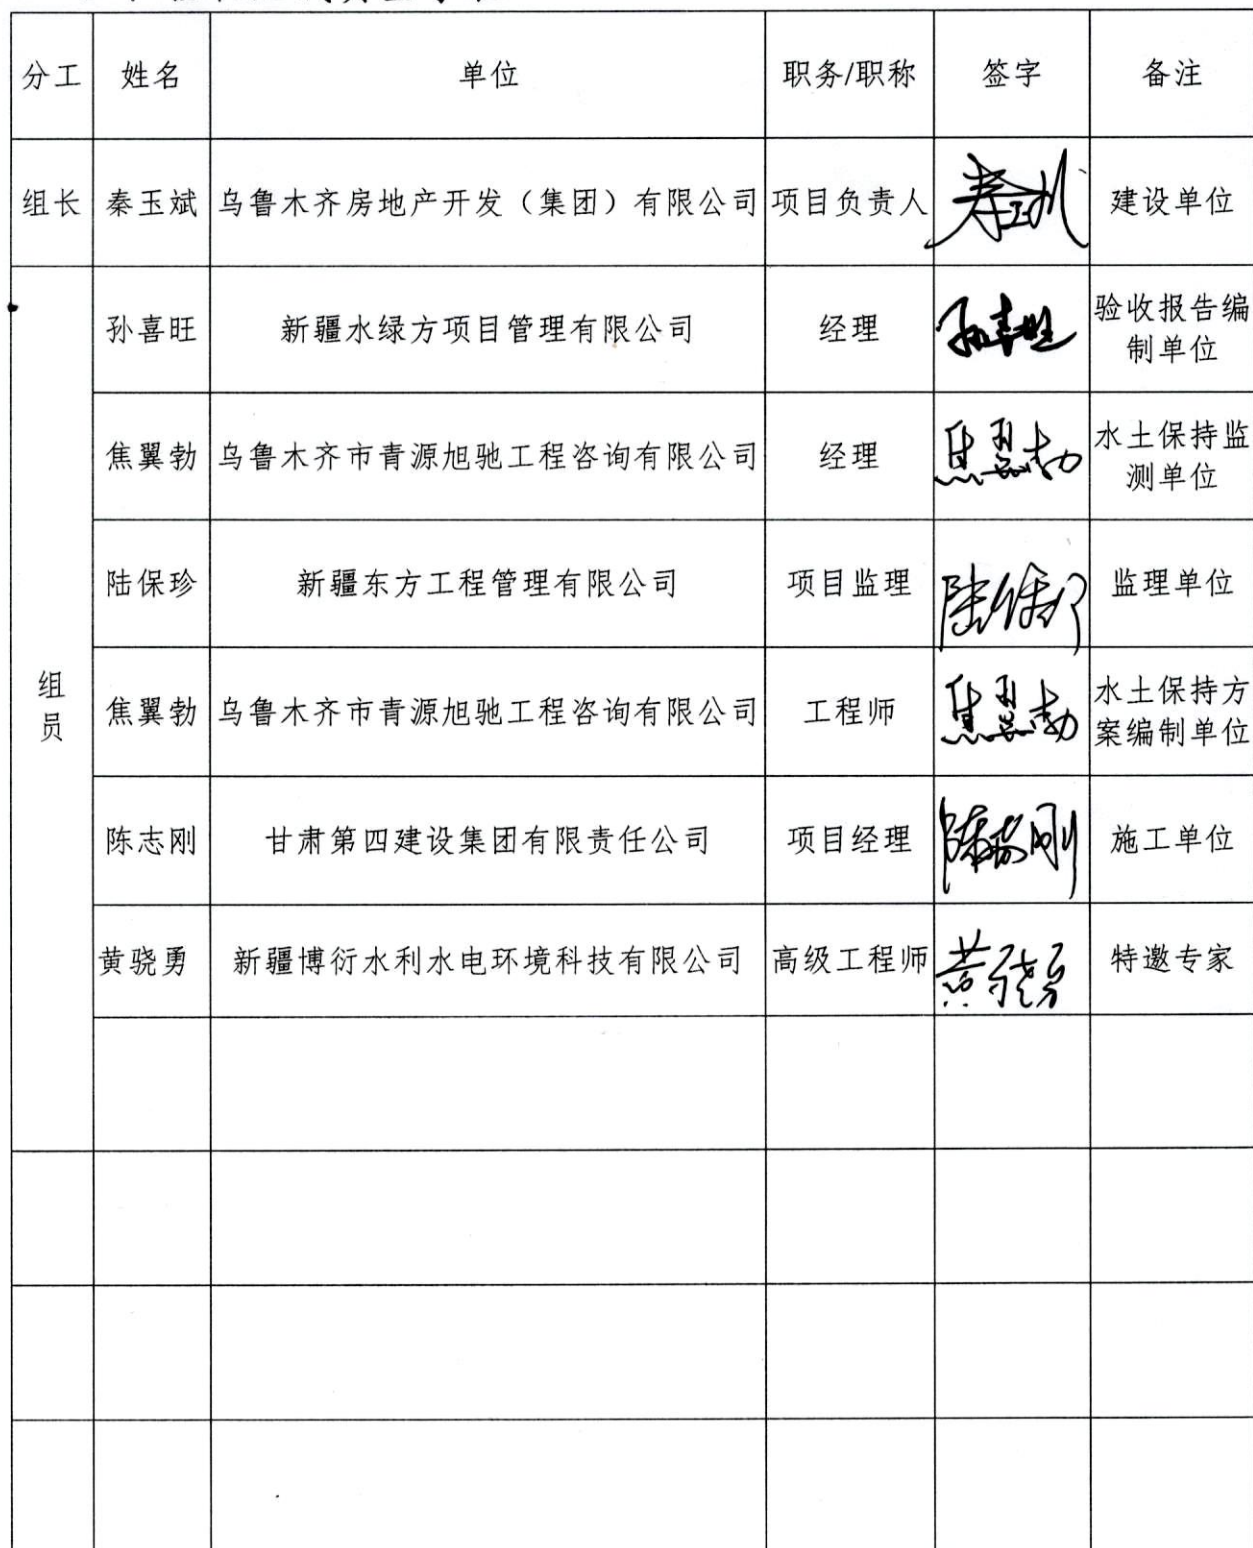 分工 姓名 单位 职务/职称 签字 备注
组长 秦玉斌 乌鲁木齐房地产开发（集团）有限公司 项目负责人 秦玉斌 建设单位
组员
孙喜旺 新疆水绿方项目管理有限公司 经理 孙喜旺 验收报告编
制单位
焦翼勃 乌鲁木齐市青源旭驰工程咨询有限公司 经理 焦翼勃 水土保持监
测单位
陆保珍 新疆东方工程管理有限公司 项目监理 陆保珍 监理单位
焦翼勃 乌鲁木齐市青源旭驰工程咨询有限公司 工程师 焦翼勃 水土保持方
案编制单位
陈志刚 甘肃第四建设集团有限责任公司 项目经理 陈志刚 施工单位
黄骁勇 新疆博衍水利水电环境科技有限公司 高级工程师 黄骁勇 特邀专家